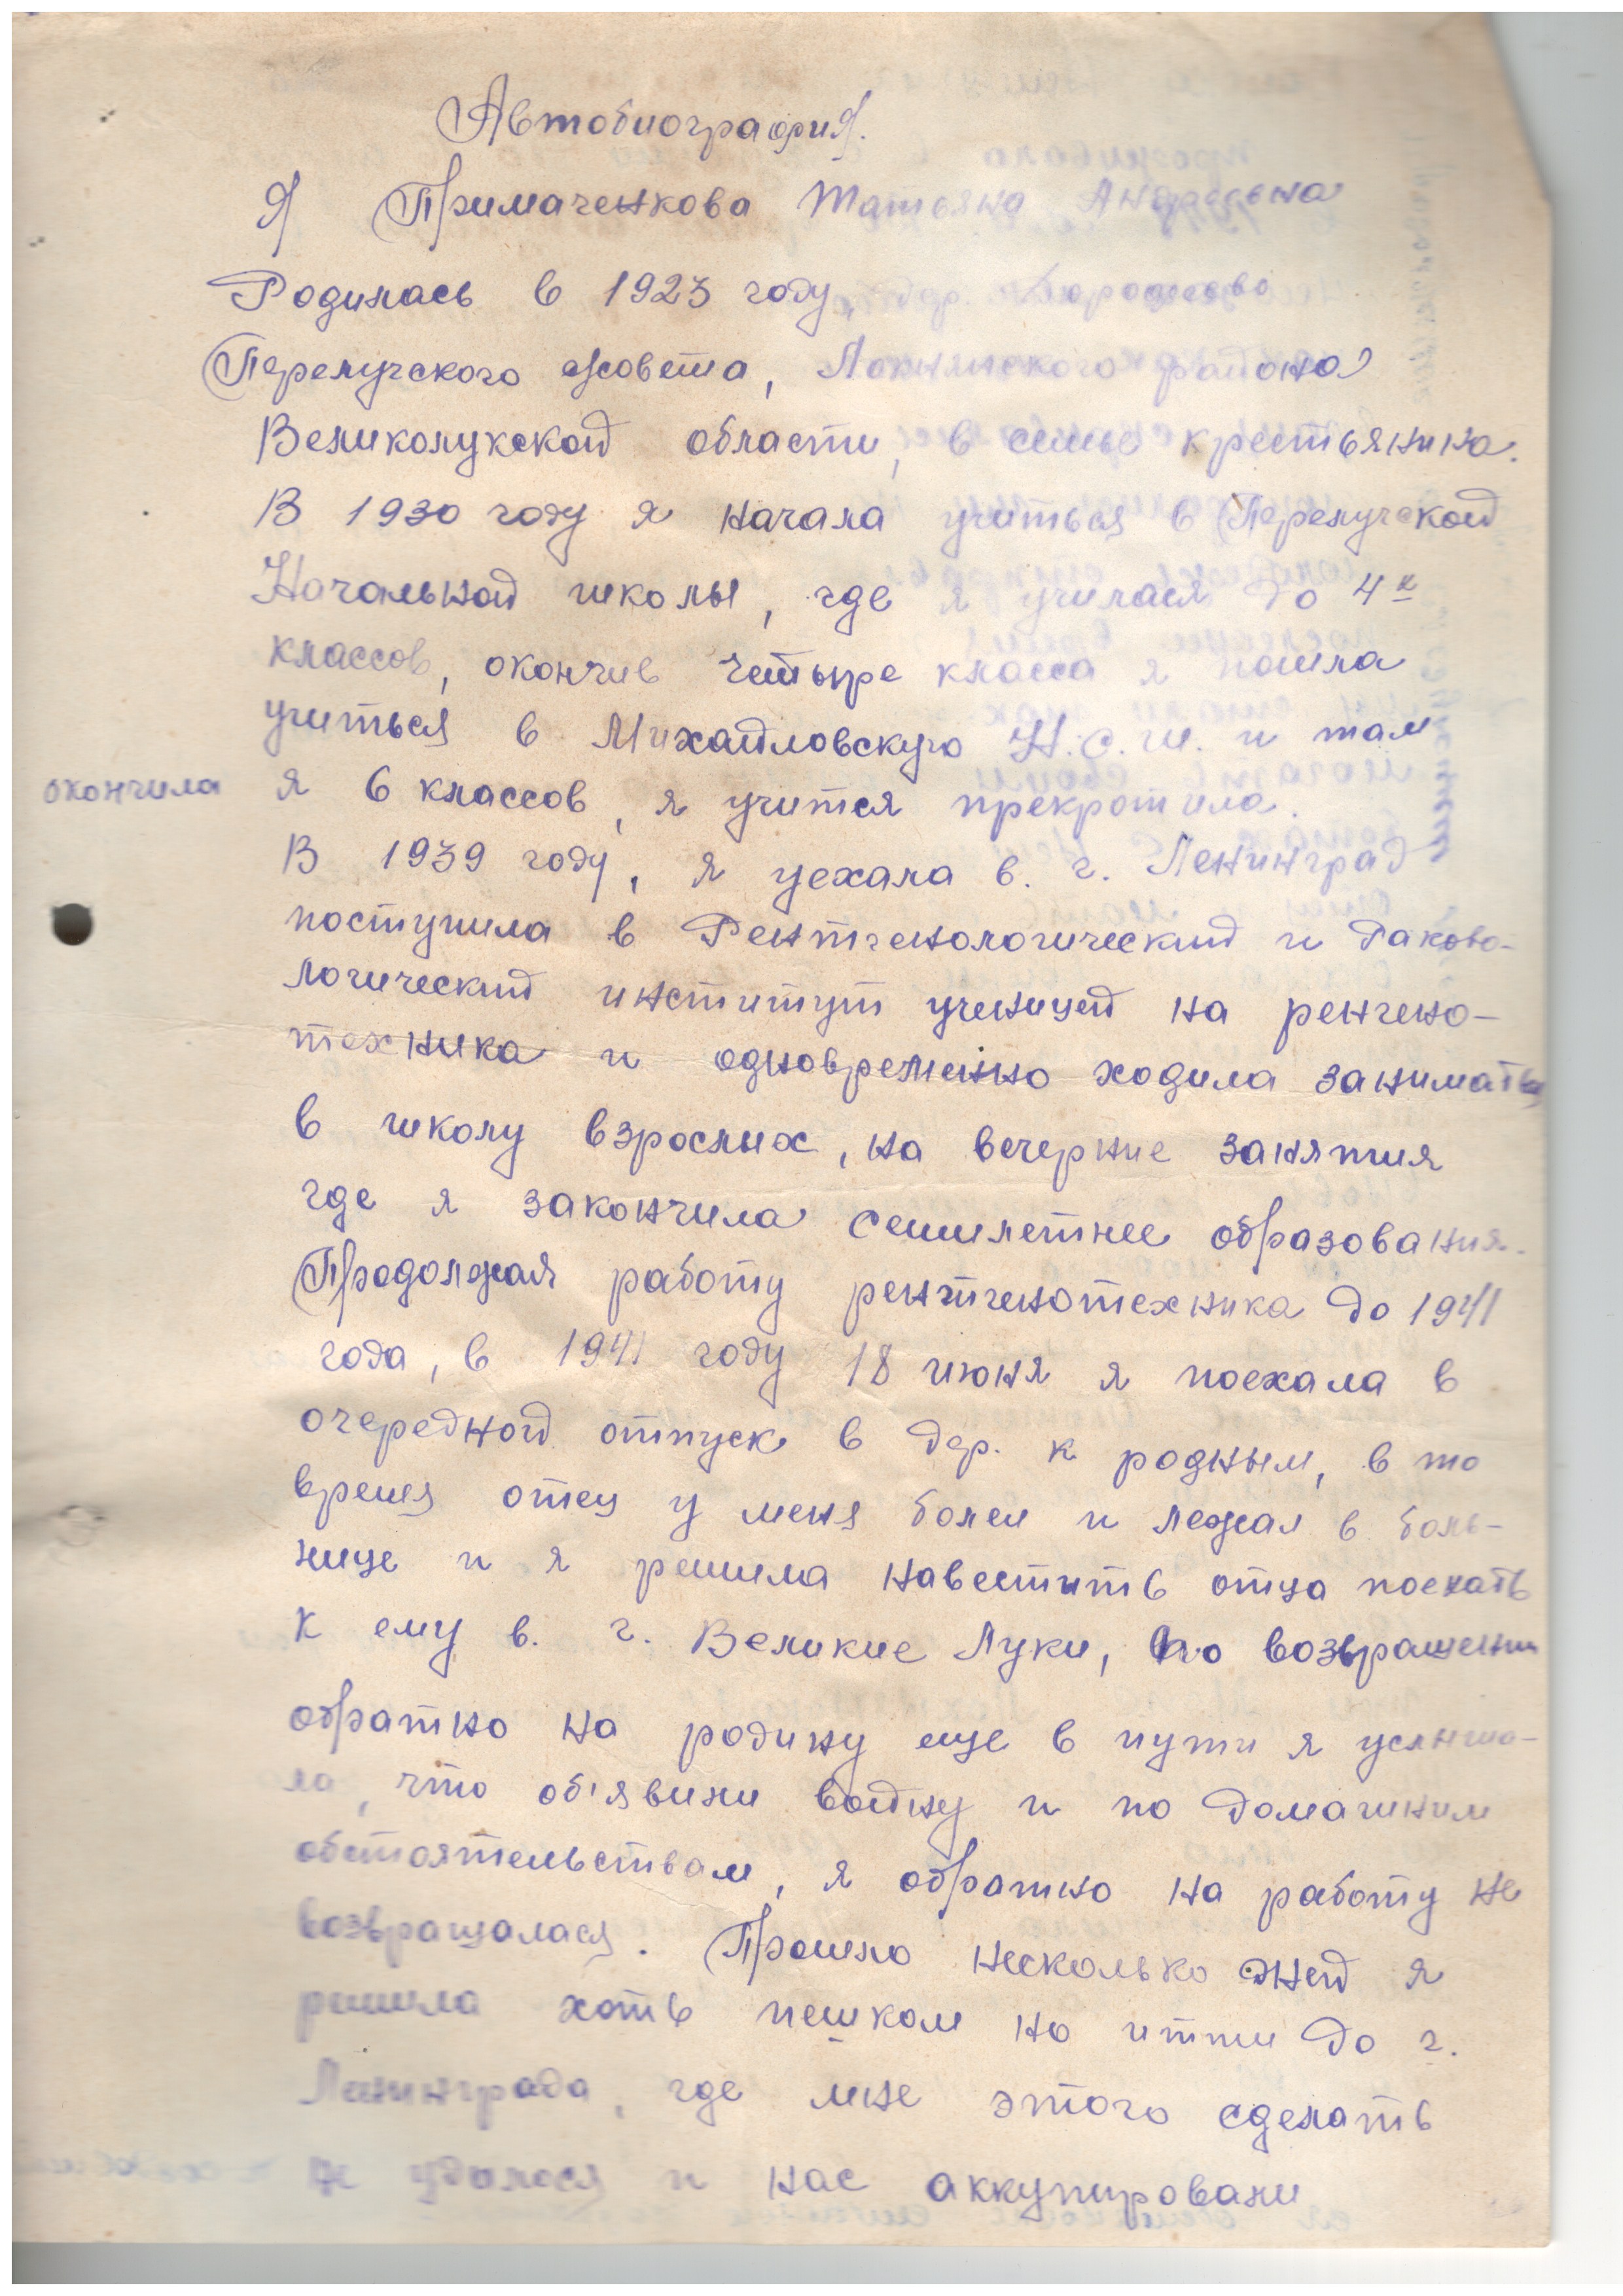 Автобиография.
Я Примаченкова Татьяна Андреевна
Родилась в 1923 году, дер.
Перелучского с/совета, Локнянского района
Великолукской области, в семье крестьянина.
В 1930 году я начала учиться в Перелучской
Начальной школы, где я училася до 4х
классов, окончив четыре класса я пошла
учиться в Михайловскую Н.С.Ш. и там
окончила я 6 классов, я учится прекротила.
В 1939 году, я уехала в. г. Ленинград
поступила в Рентгенологический и Раково-
логический институт ученицей на ренгено-
техника и одновременно ходила заниматься
в школу взрослих, на вечерние занятия
где я закончила семилетнее образования.
Продолжая работу рентгенотехника до 1941
года, в 1941 году 18 июня я поехала в
очередной отпуск в дер. к родным, в то
время отец у меня болел и лежал в боль-
нице и я решила навестить отца поехать
к ему в. г. Великие Луки, по возвращении
обратно на родину еще в пути я услыша-
ла, что об'явили войну и по домашним
обстоятельствам, я обратно на работу не
возвращалася. Прошло несколько дней я
решила хоть пешком но итти до г.
Ленинграда, где мне этого сделать
не удалося и нас аккупировали